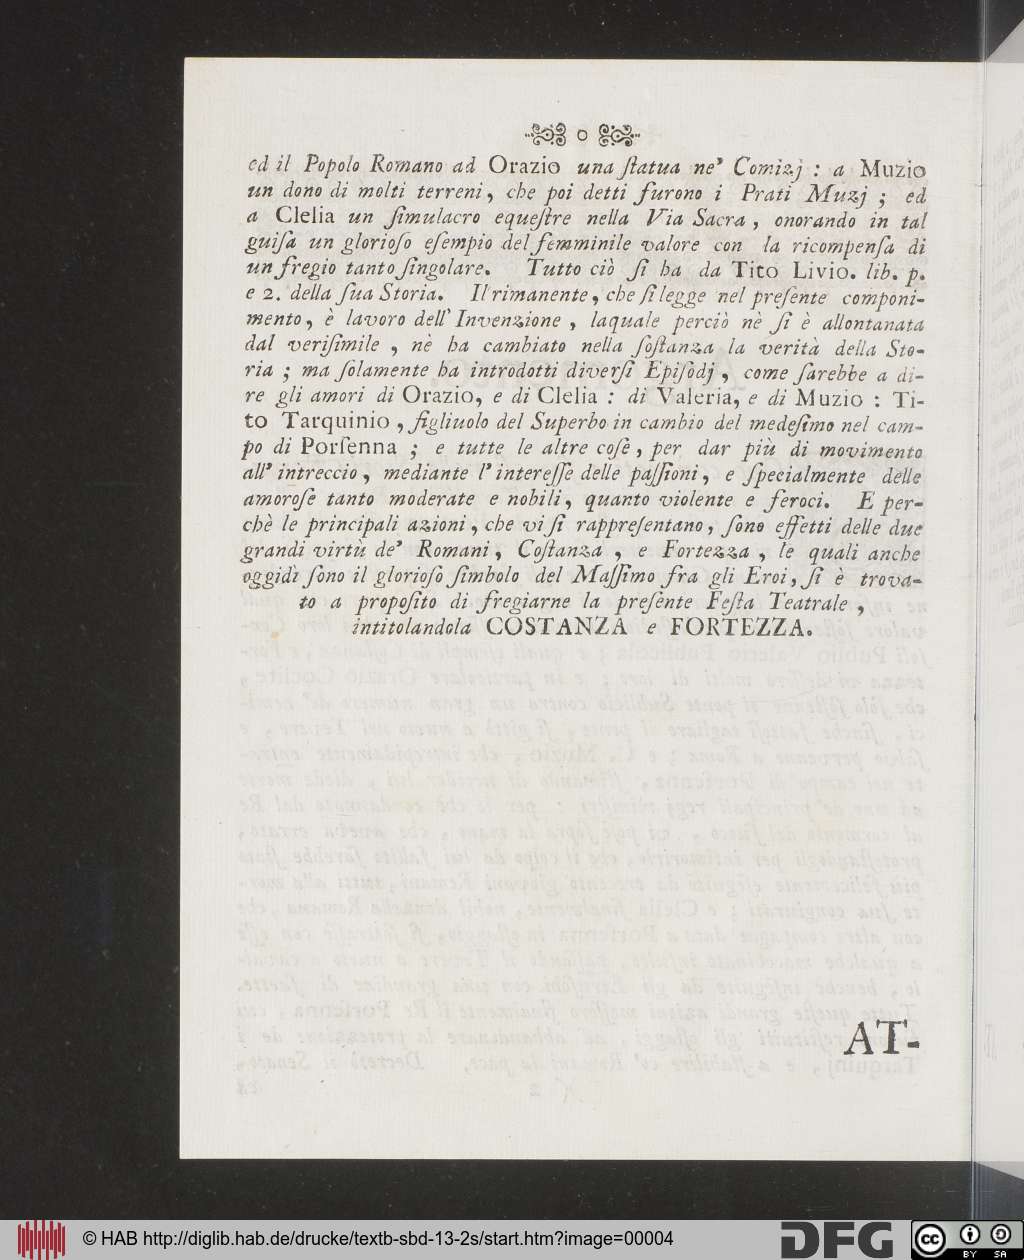 o
ed il Popolo Romano ad Orazio una ſtatua ne' Comizj : a Muzio
un dono di molti terreni, che poi detti furono i Prati Muzj ; ed
a Clelia un ſimulacro equeſtre nella Via Sacra , onorando in tal
guiſa un glorioſo eſempio del femminile valore con la ricompenſa di
un fregio tanto ſingolare. Tutto ciò ſi ha da Tito Livio. lib. p.
e 2. della ſua Storia. Il rimanente, che ſi legge nel preſente componi-
mento, è lavoro dell' Invenzione , laquale perciò nè ſi è allontanata
dal veriſimile , nè ha cambiato nella ſoſtanza la verità della Sto-
ria ; ma ſolamente ha introdotti diverſi Epiſodj , come ſarebbe a di-
re gli amori di Orazio, e di Clelia : di Valeria, e di Muzio : Ti-
to Tarquinio , figliuolo del Superbo in cambio del medeſimo nel cam-
po di Porſenna ; e tutte le altre coſe , per dar più di movimento
all' intreccio , mediante l' intereſſe delle paſſioni, e ſpecialmente delle
amoroſe tanto moderate e nobili, quanto violente e feroci. E per-
chè le principali azioni , che vi ſi rappreſentano, ſono effetti delle due
grandi virtù de' Romani, Coſtanza , e Fortezza , le quali anche
oggidì ſono il glorioſo ſimbolo del Maſſimo fra gli Eroi, ſi è trova-
to a propoſito di fregiarne la preſente Feſta Teatrale ,
intitolandola COSTANZA e FORTEZZA.
AT-
© HAB http://diglib.hab.de/drucke/textb-sbd-13-2s/start.htm?image=00004
DFG
cc
BY SA